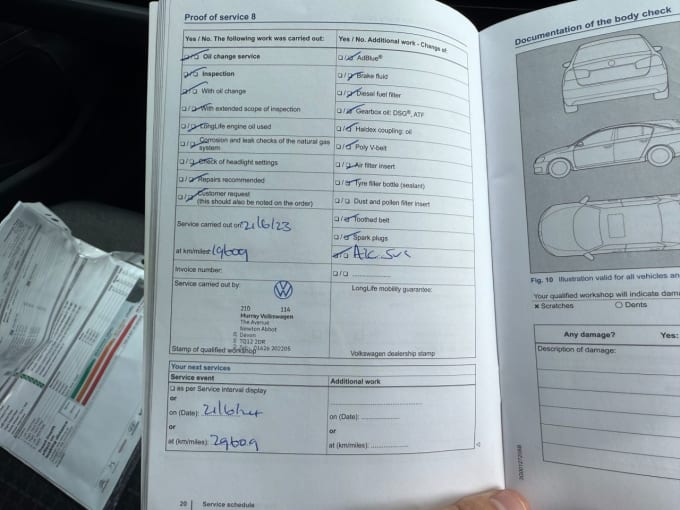 Proof of service 8
Yes / No. The following work was carried out:
Oil change service
Inspection
With oil change
With extended scope of inspection
LongLife engine oil used
Corrosion and leak checks of the natural gas
system
Check of headlight settings
Repairs recommended
Customer request
(this should also be noted on the order)
Service carried out on: 21/6/23
at km/miles: 19609
Invoice number:
Service carried out by:
210 114
Murray Volkswagen
The Avenue
Newton Abbot
Devon
TQ12 2DR
01626 202205
Stamp of qualified workshop
Yes / No. Additional work - Change of:
AdBlue®
Brake fluid
Diesel fuel filter
Gearbox oil: DSG®, ATF
Haldex coupling: oil
Poly V-belt
Air filter insert
Tyre filler bottle (sealant)
Dust and pollen filter insert
Toothed belt
Spark plugs
LongLife mobility guarantee:
Volkswagen dealership stamp
Your next services
Service event
as per Service interval display
or
on (Date): 21/6/24
or
at (km/miles): 29609
Additional work
on (Date):
or
at (km/miles):
20 Service schedule
Documentation of the body check
Fig. 10 Illustration valid for all vehicles an
Your qualified workshop will indicate dam
× Scratches O Dents
Any damage? Yes:
Description of damage: